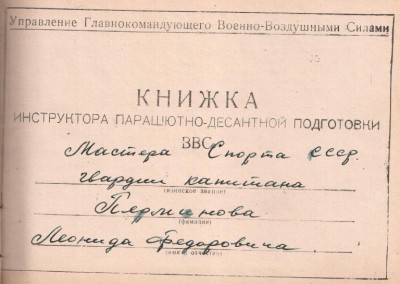 Управление Главнокомандующего Военно-Воздушными Силами
КНИЖКА
ИНСТРУКТОРА ПАРАШЮТНО-ДЕСАНТНОЙ ПОДГОТОВКИ
ЗВС
Мастера Спорта СССР.
гвардии капитана
(воинское звание)
Пермянова
(фамилия)
Леонида Федоровича.
(имя и отчество)